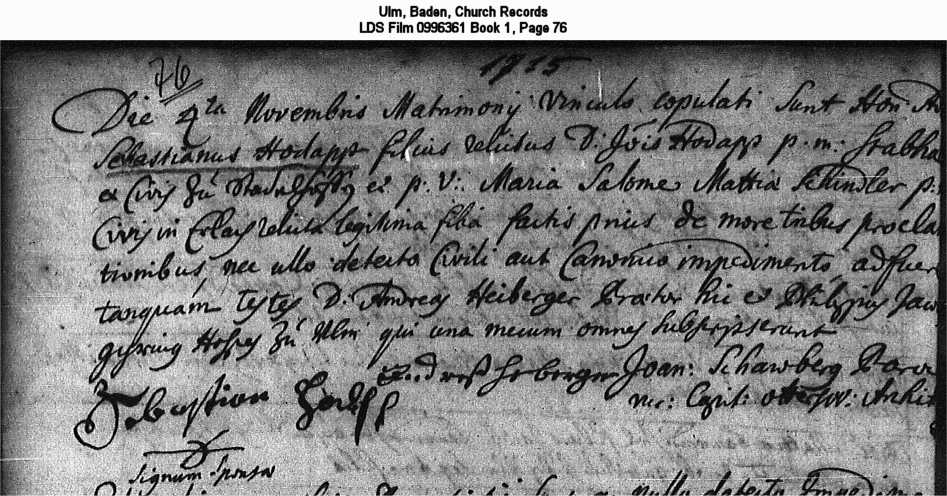 Ulm, Baden, Church Records
LDS Film 0996361 Book 1, Page 76
76
1735
Die 4ta Novembris Matrimonij vinculo copulati sunt Hon:
Sebastianus Hodapp filius relictus D: Jois Hodapp p. m:
et Civis zu et p. V: Maria Salome Mattia Schindler p:
Civis in Erlach relicta legitima filia factis prius de more tribus procla
tionibus, nec ullo detecto Civili aut Canonico impedimento, adfuer
tanquam testes D: Andreas Heiberger Prætor hic et Philippus
Hospes zu Ulm qui una mecum omnes subscripserunt
Joan: Schawberg
Sebastian
Capit:
signum sponsæ
nullo detecto